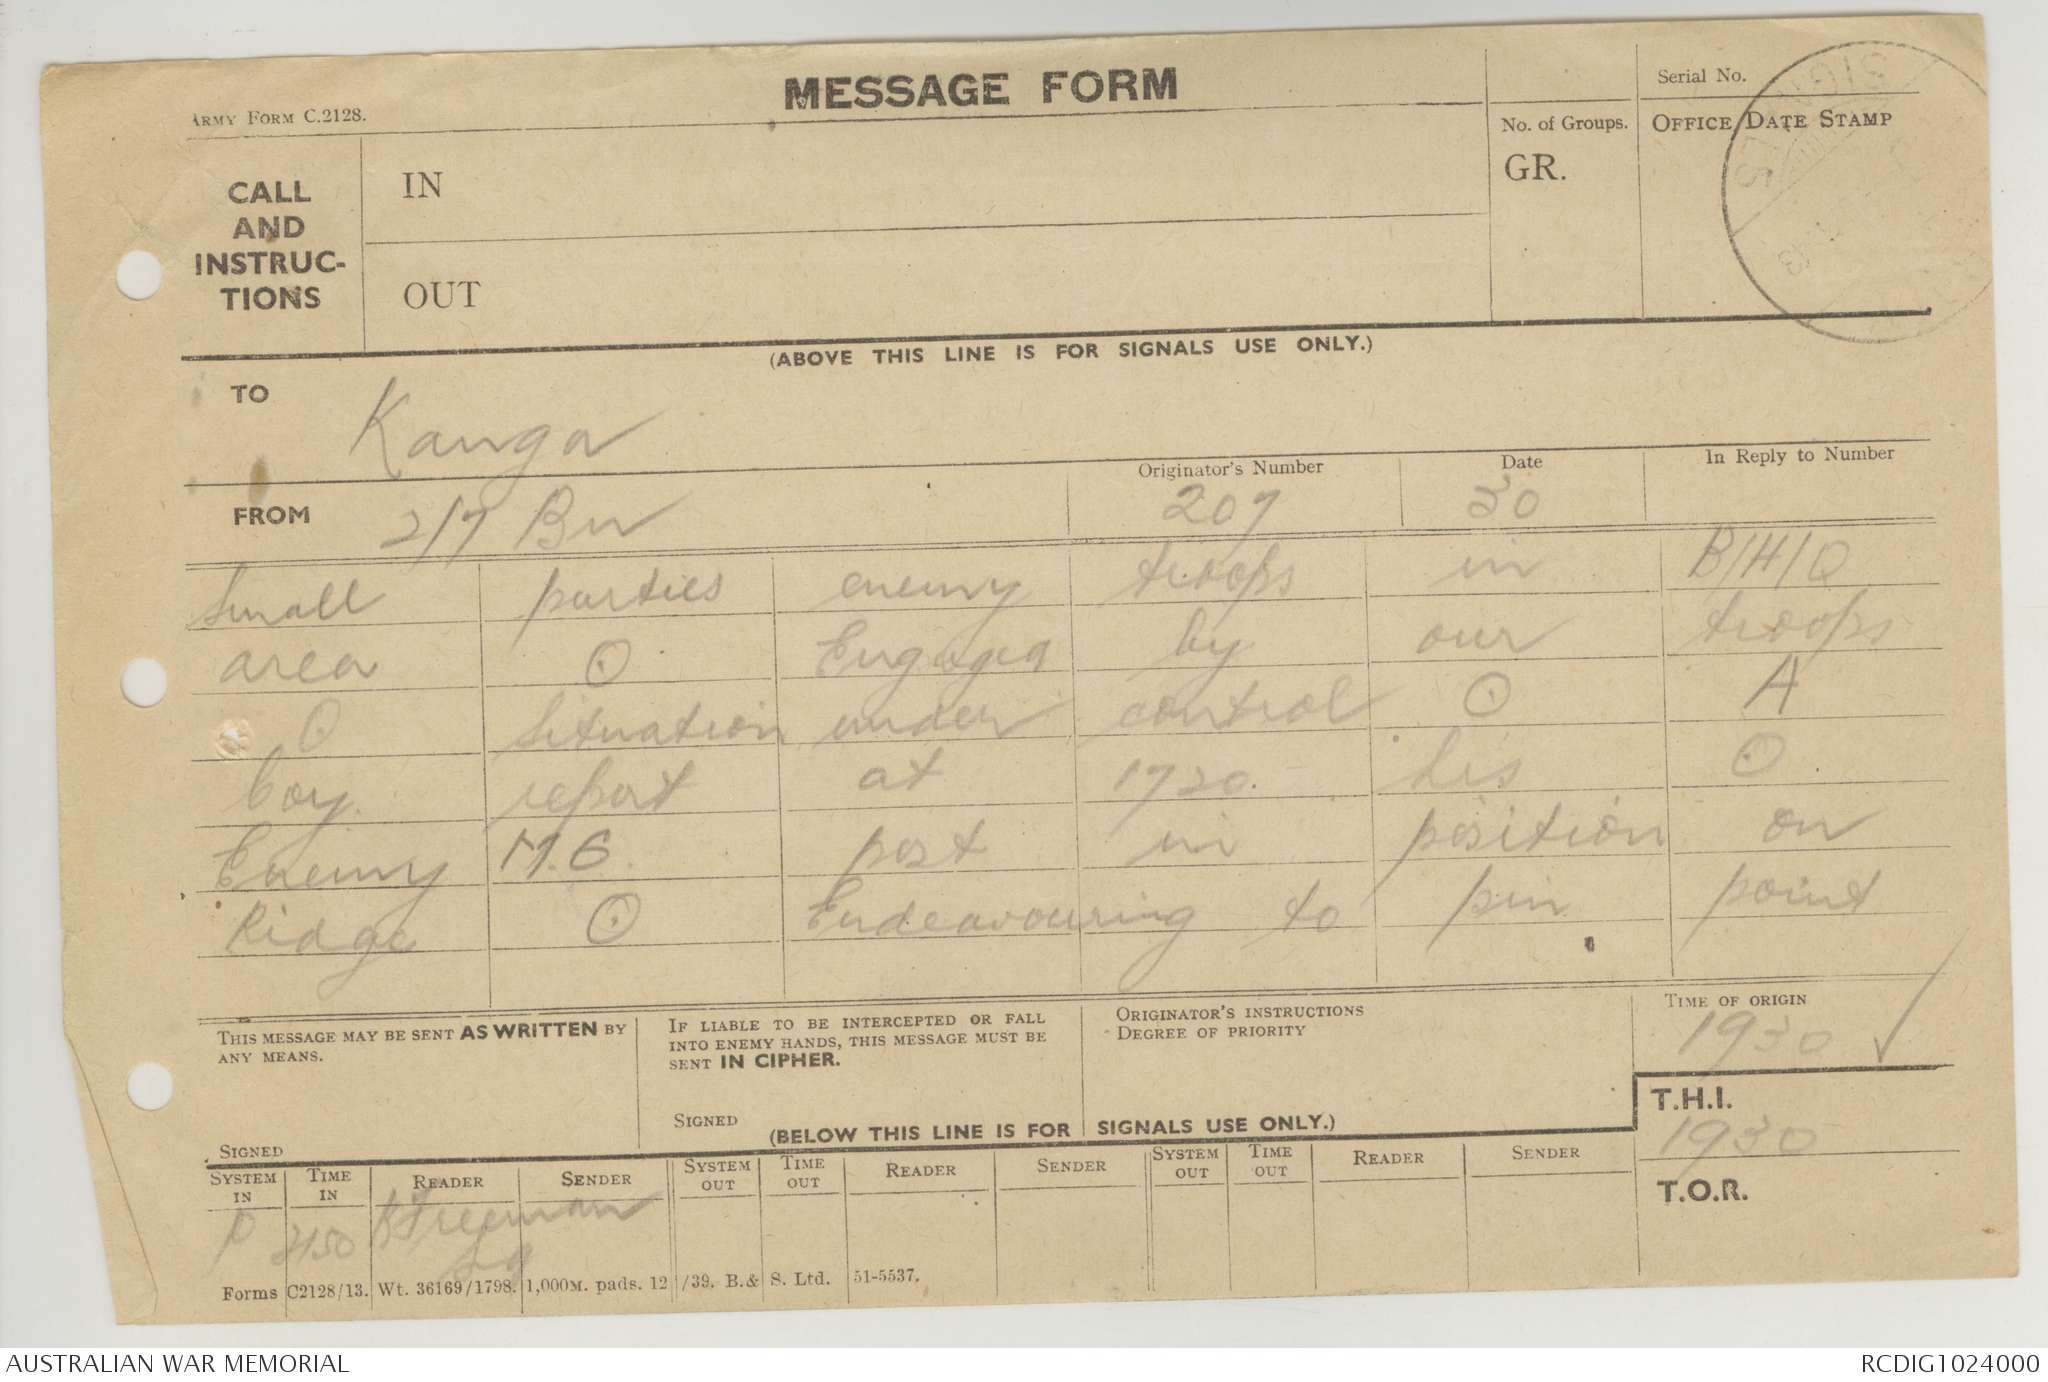 MESSAGE FORM
ARMY FORM C.2128.
Serial No.
No. of Groups.
GR.
OFFICE DATE STAMP
SIGNALS
CALL
AND
INSTRUC-
TIONS
IN
OUT
(ABOVE THIS LINE IS FOR SIGNALS USE ONLY.)
TO Kanga
FROM 2/7 Bn
Originator's Number 207
Date 30
In Reply to Number
Small parties enemy troops in B/H/Q
area ⊙ Engaged by our troops
⊙ Situation under control ⊙ A
Coy. report at 1720. his ⊙
Enemy M.G. post in position on
Ridge ⊙ Endeavouring to pin point
THIS MESSAGE MAY BE SENT AS WRITTEN BY
ANY MEANS.
SIGNED
IF LIABLE TO BE INTERCEPTED OR FALL
INTO ENEMY HANDS, THIS MESSAGE MUST BE
SENT IN CIPHER.
SIGNED
ORIGINATOR'S INSTRUCTIONS
DEGREE OF PRIORITY
TIME OF ORIGIN
1930 ✓
T.H.I.
1930
T.O.R.
(BELOW THIS LINE IS FOR SIGNALS USE ONLY.)
SYSTEM IN TIME IN READER SENDER SYSTEM OUT TIME OUT READER SENDER SYSTEM OUT TIME OUT READER SENDER
P Freeman
Sg
Forms C2128/13. Wt. 36169/1798. 1,000M. pads. 12/39. B.& S. Ltd. 51-5537.
AUSTRALIAN WAR MEMORIAL
RCDIG1024000